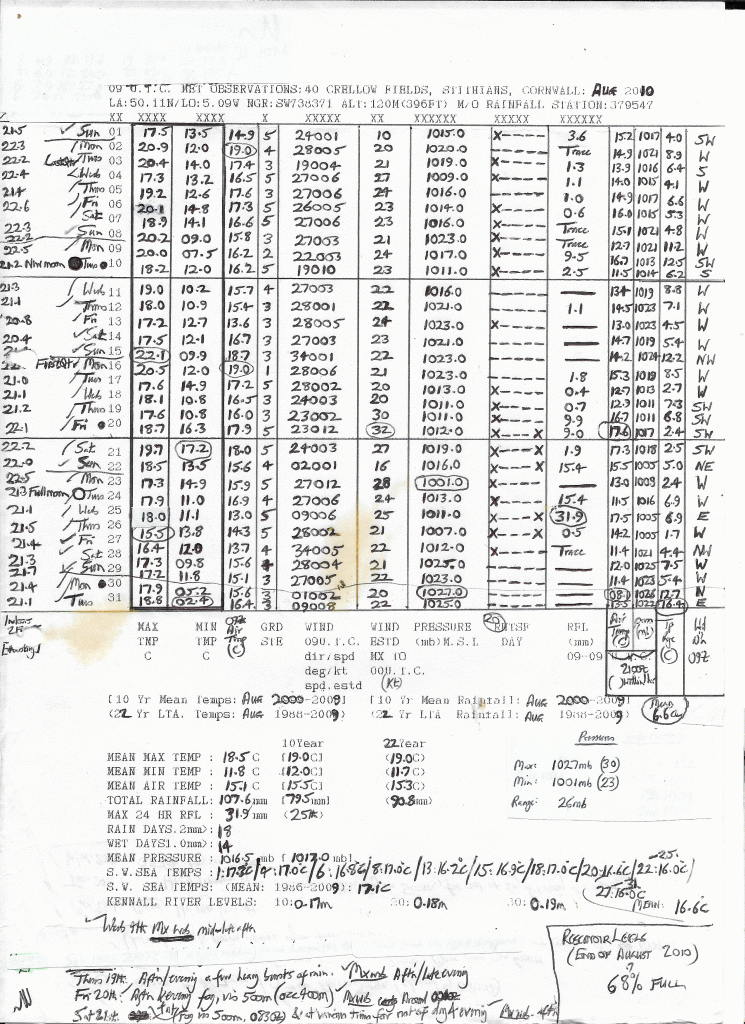 09 U.T.C. MET OBSERVATIONS:40 CRELLOW FIELDS, STITHIANS, CORNWALL: Aug 2010
LA:50.11N/LO:5.09W NGR:SW738371 ALT:120M(396FT) M/O RAINFALL STATION:379547
XX XXXX XXXX X XXXXX XX XXXXXX XXXXX XXXXXX
21.5 Sun 01 17.5 13.5 14.9 5 24001 10 1015.0 X---- 3.6 15.2 1017 4.0 SW
22.3 Mon 02 20.9 12.0 19.0 4 28005 20 1020.0 ----- Trace 14.9 1021 8.9 W
22.2 Last Qtr Tues 03 20.4 14.0 17.4 3 19004 21 1019.0 X---- 1.3 13.9 1016 6.4 S
22.4 Wed 04 17.3 13.2 16.5 5 27006 27 1009.0 X---- 1.1 14.0 1015 4.1 W
21.4 Thu 05 19.2 12.6 17.6 3 27006 24 1016.0 ----- 1.0 14.9 1017 6.6 W
22.6 Fri 06 20.1 14.8 17.3 5 26005 23 1014.0 X---- 0.6 16.0 1015 5.3 W
22.3 Sat 07 18.9 14.1 16.6 5 27006 23 1016.0 X---- Trace 15.1 1021 4.8 W
22.2 Sun 08 20.2 09.0 15.8 3 27003 21 1023.0 X---- Trace 12.7 1021 11.2 W
22.5 Mon 09 20.0 07.5 16.2 2 22003 24 1017.0 X---- 9.5 16.7 1013 12.5 SW
21.2 New moon Tues 10 18.2 12.0 16.2 5 19010 23 1011.0 X---- 2.5 11.5 1014 6.2 S
21.3 Wed 11 19.0 10.2 15.7 4 27003 22 1016.0 X---- — 13.4 1019 8.8 W
21.1 Thu 12 18.0 10.9 15.4 3 28001 22 1021.0 ----- 1.1 14.5 1023 7.1 W
20.8 Fri 13 17.2 12.7 13.6 3 28005 24 1023.0 X---- — 13.0 1023 4.5 W
20.4 Sat 14 17.5 12.1 16.7 3 27003 23 1021.0 ----- — 14.7 1019 5.4 W
Sun 15 22.1 09.9 18.7 3 34001 22 1023.0 ----- — 14.2 1024 12.2 NW
First Qtr Mon 16 20.5 12.0 19.0 1 28006 21 1023.0 ----- 1.8 15.3 1018 8.5 W
21.0 Tues 17 17.6 14.9 17.2 5 28002 20 1013.0 X---- 0.4 12.7 1013 2.7 W
21.1 Wed 18 18.1 10.8 16.5 3 24003 20 1011.0 X---- 0.7 12.9 1011 7.3 SW
21.2 Thu 19 17.6 10.8 16.0 3 23002 30 1011.0 X---- 9.9 16.7 1011 6.8 SW
22.1 Fri 20 18.7 16.3 17.9 5 23012 32 1012.0 X---X 9.0 17.6 1017 2.4 SW
22.2 Sat 21 19.7 17.2 18.0 5 24003 27 1019.0 X---X 1.9 17.3 1018 2.5 SW
22.0 Sun 22 18.5 13.5 15.6 4 02001 16 1016.0 X---X 15.4 15.5 1005 5.0 NE
22.5 Mon 23 17.3 14.9 15.9 5 27012 28 1001.0 X---- — 13.0 1009 2.4 W
21.3 Full moon Tues 24 17.9 11.0 16.9 4 27006 24 1013.0 ----- 15.4 11.5 1016 6.9 W
21.1 Wed 25 18.0 11.1 13.0 5 09006 25 1011.0 X---X 31.9 17.5 1005 6.9 E
21.5 Thu 26 15.5 13.8 14.3 5 28002 21 1007.0 X---X 0.5 14.2 1005 1.7 W
21.4 Fri 27 16.4 12.0 13.7 4 34005 22 1012.0 X---- Trace 11.4 1021 4.4 NW
21.3 Sat 28 17.3 09.8 15.6 4 28004 21 1022.0 ----- — 12.0 1025 7.5 W
21.7 Sun 29 17.2 11.8 15.1 3 27005 22 1023.0 ----- — 11.4 1023 5.4 W
21.4 Mon 30 17.9 05.2 15.6 3 01002 20 1027.0 ----- — 08.1 1026 12.7 N
21.1 Tues 31 18.8 02.4 16.4 3 09008 22 1025.0 ----- — 13.5 1022 16.4 E
MAX MIN Air GRD WIND WIND PRESSURE RFL
TMP TMP Temp STE 09U.T.C. ESTD (mb)M.S.L DAY (mm)
C C (C) dir/spd MX 10 00U.T.C. 09-09
deg/kt
spd.estd (kt)
[10 Yr Mean Temps: Aug 2000-2009] [10 Yr Mean Rainfall: Aug 2000-2009]
(22 Yr LTA. Temps: Aug 1988-2009) (22 Yr LTA Rainfall: Aug 1988-2009)
Mean 6.6C
10Year 22Year
MEAN MAX TEMP : 18.5 C [19.0C] (19.0C)
MEAN MIN TEMP : 11.8 C [12.0C] (11.7C)
MEAN AIR TEMP : 15.1 C [15.5C] (15.3C)
TOTAL RAINFALL: 107.6mm [79.5mm] (90.8mm)
MAX 24 HR RFL : 31.9mm (25th)
RAIN DAYS.2mm>: 18
WET DAYS1.0mm>: 14
MEAN PRESSURE : 1016.5 mb [1017.0 mb]
Pressures
Max: 1027mb (30)
Min: 1001mb (23)
Range: 26mb
S.W. SEA TEMPS :1:17.2°C/4:17.0°C/6:16.9°C/8:17.0°C/13:16.2°C/15:16.9°C/18:17.0°C/20:16.6°C/22:16.0°C/
S.W. SEA TEMPS: (MEAN: 1986-2009): 17.1°C
27:16.0°C MEAN: 16.6°C
KENNALL RIVER LEVELS: 10:0.17m 20:0.18m 30:0.19m
Reservoir Levels
(End of August 2010)
68% Full
Thurs 19th. Aftn/evening a few heavy bursts of rain.
Fri 20th: Aftn & evening fog, vis 500m (occ 400m)
Sat 21st (fog vis 500m, 0830z)